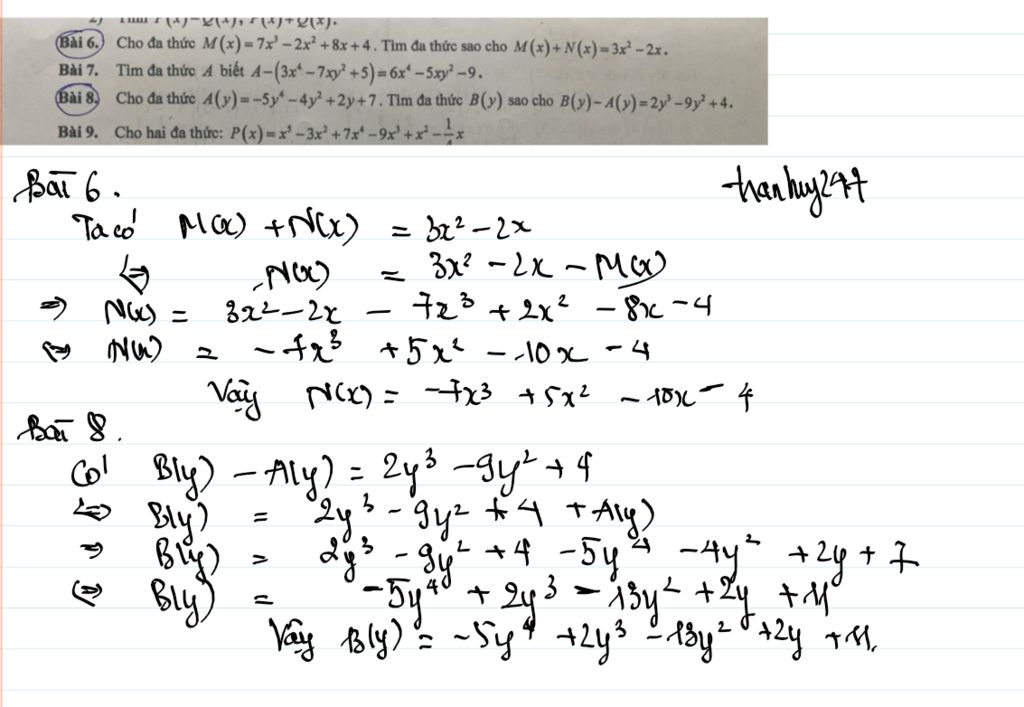 2) Tính P(x)−Q(x), P(x)+Q(x).
Bài 6. Cho đa thức M(x)=7x³−2x²+8x+4. Tìm đa thức sao cho M(x)+N(x)=3x²−2x.
Bài 7. Tìm đa thức A biết A−(3x⁴−7xy²+5)=6x⁴−5xy²−9.
Bài 8. Cho đa thức A(y)=−5y⁴−4y²+2y+7. Tìm đa thức B(y) sao cho B(y)−A(y)=2y³−9y²+4.
Bài 9. Cho hai đa thức: P(x)=x⁵−3x²+7x⁴−9x³+x²−1/4x
Bài 6.
tranhuy247
Ta có M(x) + N(x) = 3x² − 2x
⇔ N(x) = 3x² − 2x − M(x)
⇒ N(x) = 3x² − 2x − 7x³ + 2x² − 8x − 4
⇔ N(x) = −7x³ + 5x² − 10x − 4
Vậy N(x) = −7x³ + 5x² − 10x − 4
Bài 8.
Có B(y) − A(y) = 2y³ − 9y² + 4
⇔ B(y) = 2y³ − 9y² + 4 + A(y)
⇒ B(y) = 2y³ − 9y² + 4 − 5y⁴ − 4y² + 2y + 7
⇔ B(y) = −5y⁴ + 2y³ − 13y² + 2y + 11
Vậy B(y) = −5y⁴ + 2y³ − 13y² + 2y + 11.